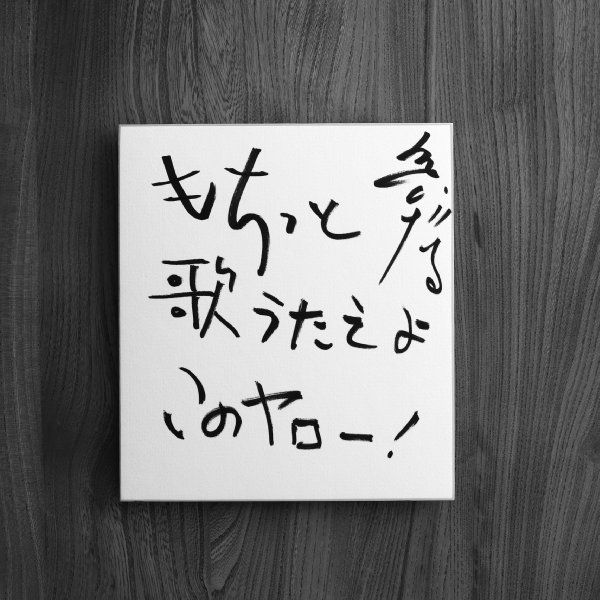 もちっと
歌うたえよ
このヤロー!